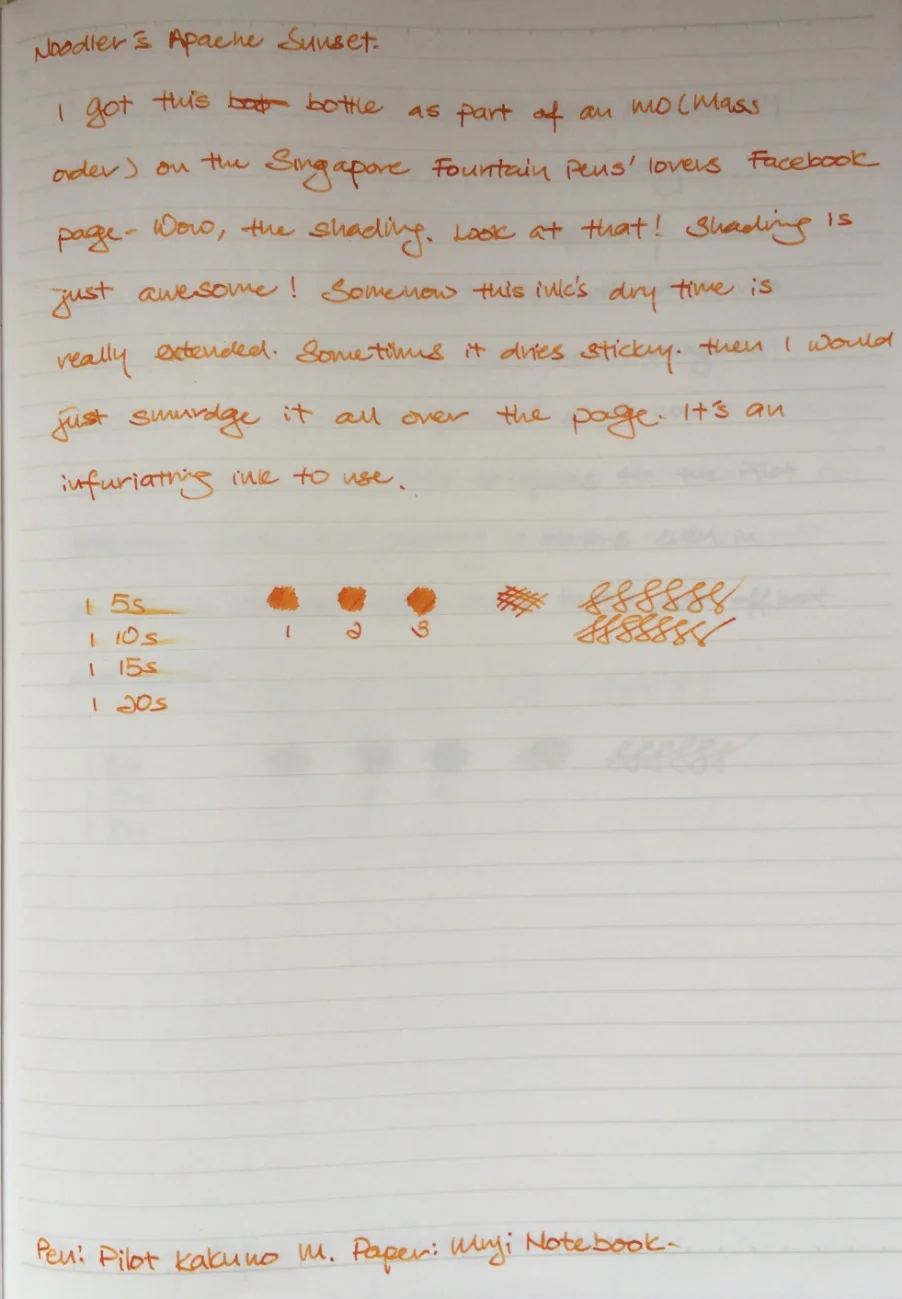 Noodler's Apache Sunset.
I got this bottle as part of an MO (Mass
order) on the Singapore Fountain Pens' lovers Facebook
page - Wow, the shading. Look at that! Shading is
just awesome! Somehow this ink's dry time is
really extended. Sometimes it dries sticky. then I would
just smurdge it all over the page. It's an
infuriating ink to use.
1 5s
1 10s
1 15s
1 20s
1 2 3
Pen: Pilot Kakuno M. Paper: Muji Notebook-